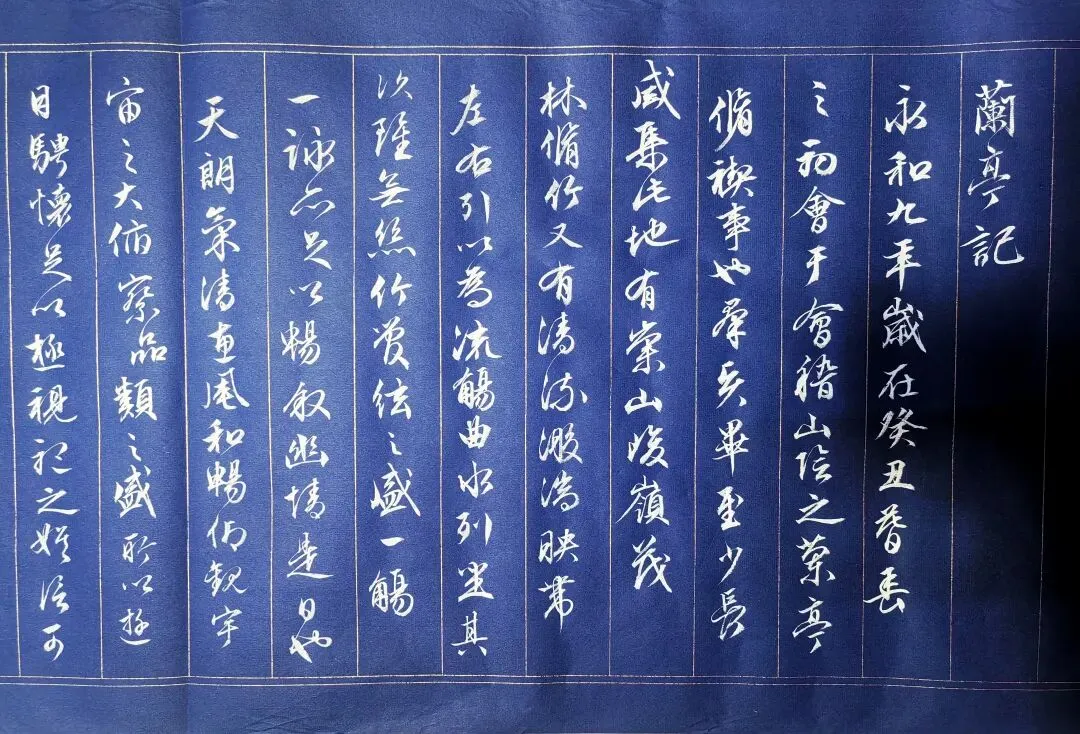 蘭亭記
永和九年歲在癸丑暮春
之初會于會稽山陰之蘭亭
脩禊事也羣賢畢至少長
咸集此地有崇山峻嶺茂
林脩竹又有清流激湍映帶
左右引以為流觴曲水列坐其
次雖無絲竹管絃之盛一觴
一詠亦足以暢敘幽情是日也
天朗氣清惠風和暢仰觀宇
宙之大俯察品類之盛所以遊
目騁懷足以極視聽之娛信可